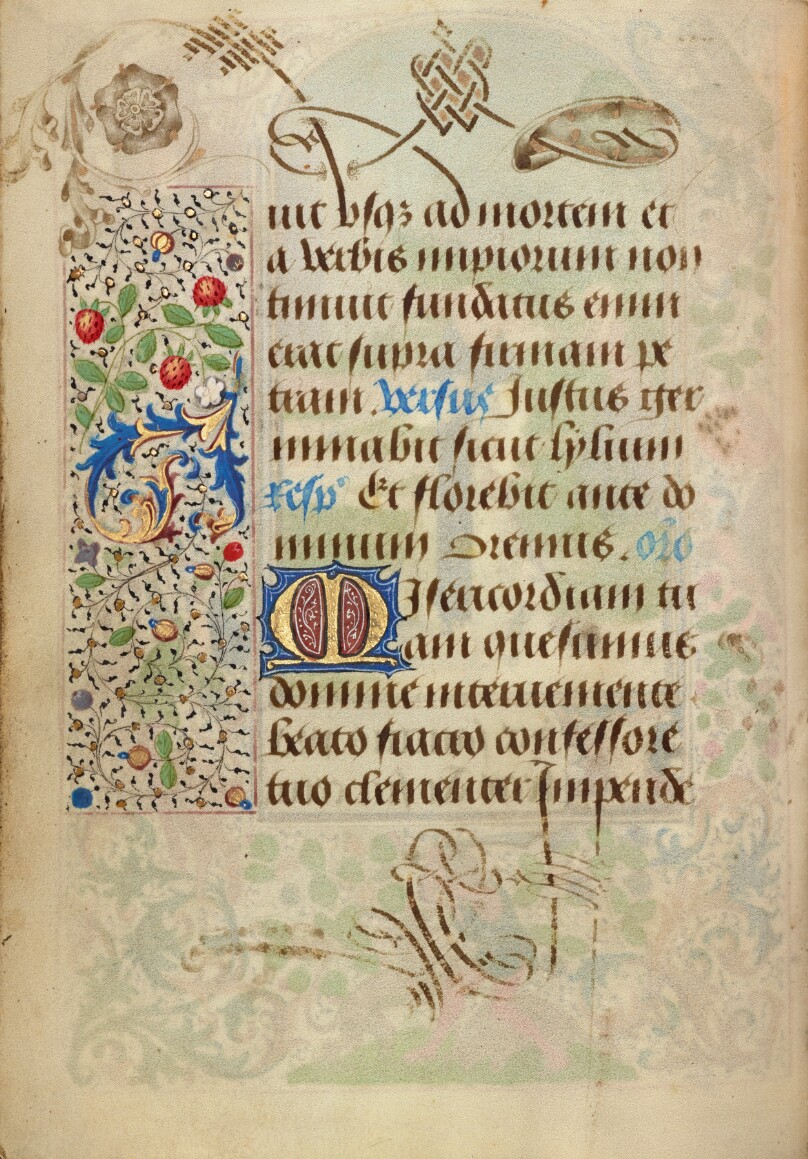 uit vsqꝫ ad mortem et
a verbis impiorum non
timuit fundatus enim
erat supra firmam pe
tram. versus Justus ger
minabit sicut lylium
resp° Et florebit ante do
minum Oremus. oro
Misericordiam tu
am quesumus
domine interueniente
beato fiacro confessore
tuo clementer impende